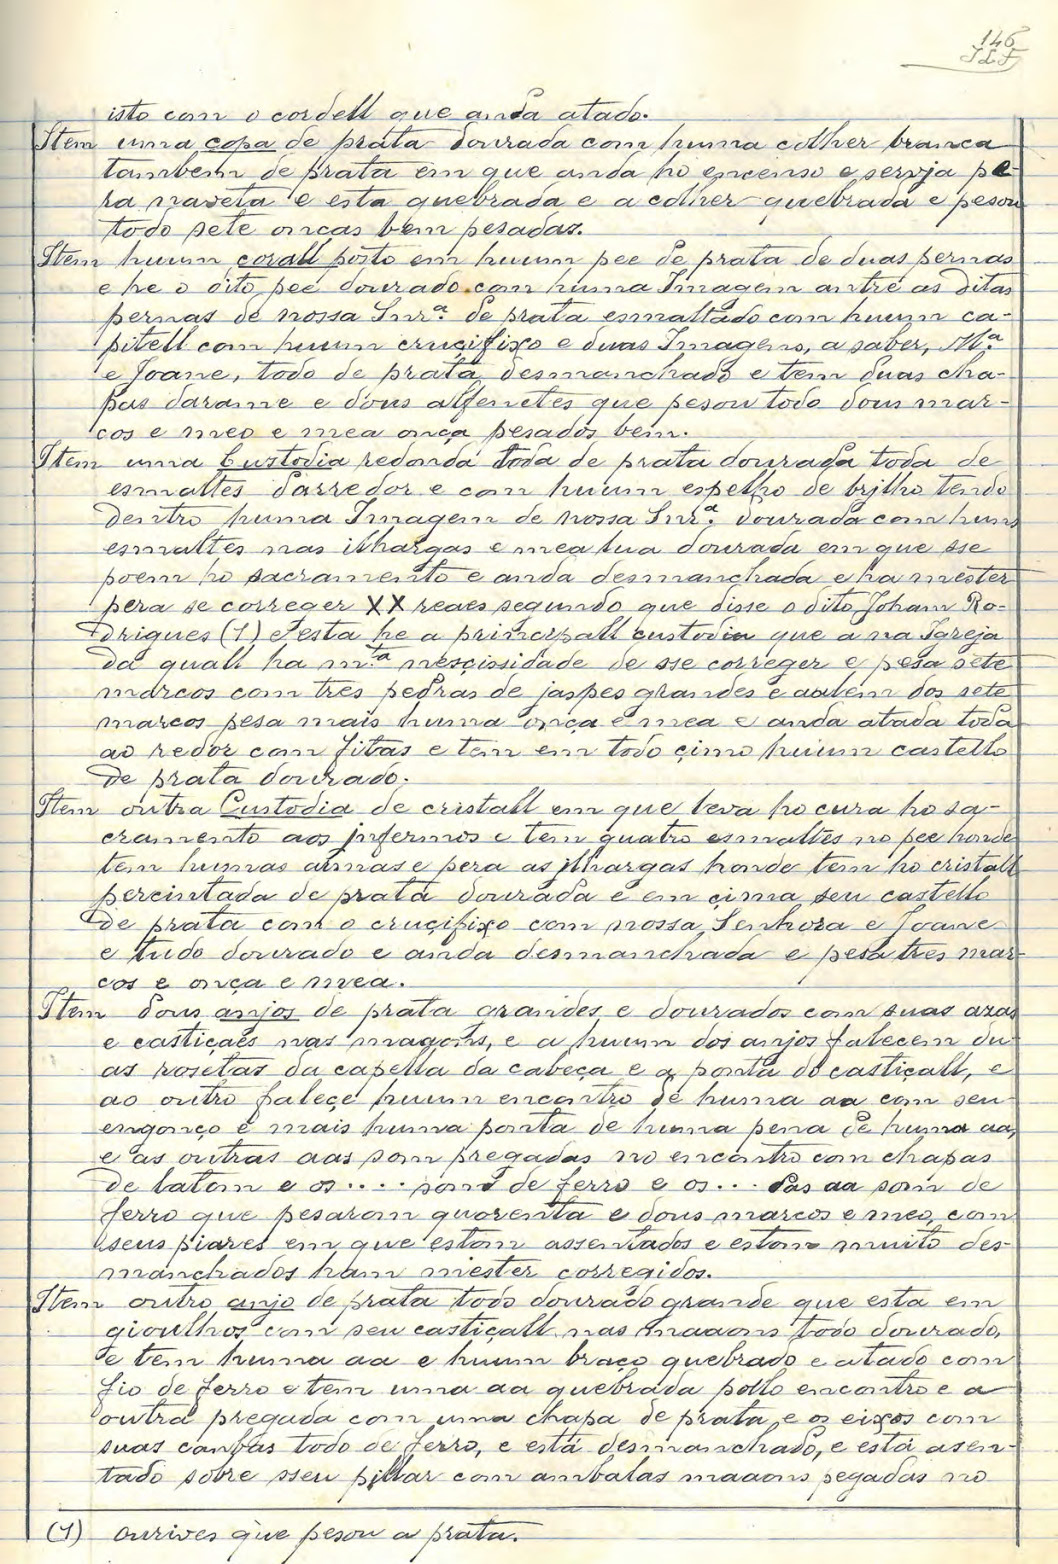 146
isto com o cordell que anda atado.
Item uma copa de prata dourada com huma colher branca
tambem de prata em que anda ho encenso e servja pe-
ra naveta e esta quebrada e a colher quebrada e pesou
todo sete onças bem pesadas.
Item huum corall posto em huum pee de prata de duas pernas
e he o dito pee dourado com huma Imagem antre as ditas
pernas de nossa Snrª. de prata esmaltado com huum ca-
pitell com huum cruçifixo e duas Imagens, a saber, Mª.
e Joane, todo de prata desmanchado e tem duas cha-
pas darame e dous alfenetes que pesou todo dous mar-
cos e meo e mea onça pesados bem.
Item uma Custodia redonda toda de prata dourada toda de
esmaltes darredor e com huum espelho de brjlho tendo
dentro huma Imagem de nossa Snrª. dourada com huns
esmaltes nas ilhargas e mea lua dourada em que sse
poem ho sacramento e anda desmanchada e ha mester
pera se correger XX reaes segundo que disse o dito Joham Ro-
drigues (1) e esta he a principall custodia que a na Igreja
da quall ha mtª nesçissidade de sse correger e pesa sete
marcos com tres pedras de jaspes grandes e aalem dos sete
marcos pesa mais huma onça e mea e anda atada toda
ao redor com fitas e tem em todo çimo huum castello
de prata dourado.
Item outra Custodia de cristall em que leva ho cura ho sa-
cramento aos jnfermos e tem quatro esmaltes no pee honde
tem humas armas e pera as jlhargas honde tem ho cristall
percintada de prata dourada e em çima seu castello
de prata com o cruçifixo com nossa Senhora e Joane
e tudo dourado e anda desmanchada e pesa tres mar-
cos e onça e mea.
Item dous anjos de prata grandes e dourados com suas azas
e castiçaes nas magons, e a huum dos anjos falecem du-
as rosetas da capella da cabeça e a ponta do castiçall, e
ao outro faleçe huum encontro de huma aa com seu
engonço e mais huma ponta de huma pena de huma aa,
e as outras aas som pregadas no encontro com chapas
de latom e os .... som de ferro e os ... das aa som de
ferro que pesarom quorenta e dous marcos e meo, com
seus piares em que estam assentados e estom muito des-
manchados ham miester corregidos.
Item outro anjo de prata todo dourado grande que esta em
gioulhos com seu castiçall nas maaons todo dourado,
e tem huma aa e huum braço quebrado e atado com
fio de ferro e tem uma aa quebrada pollo encontro e a
outra pregada com uma chapa de prata e os eixos com
suas canbas todo de ferro, e está desmanchado, e está asen-
tado sobre sseu pillar com ambalas maaons pegadas no
(1) ourives que pesou a prata.